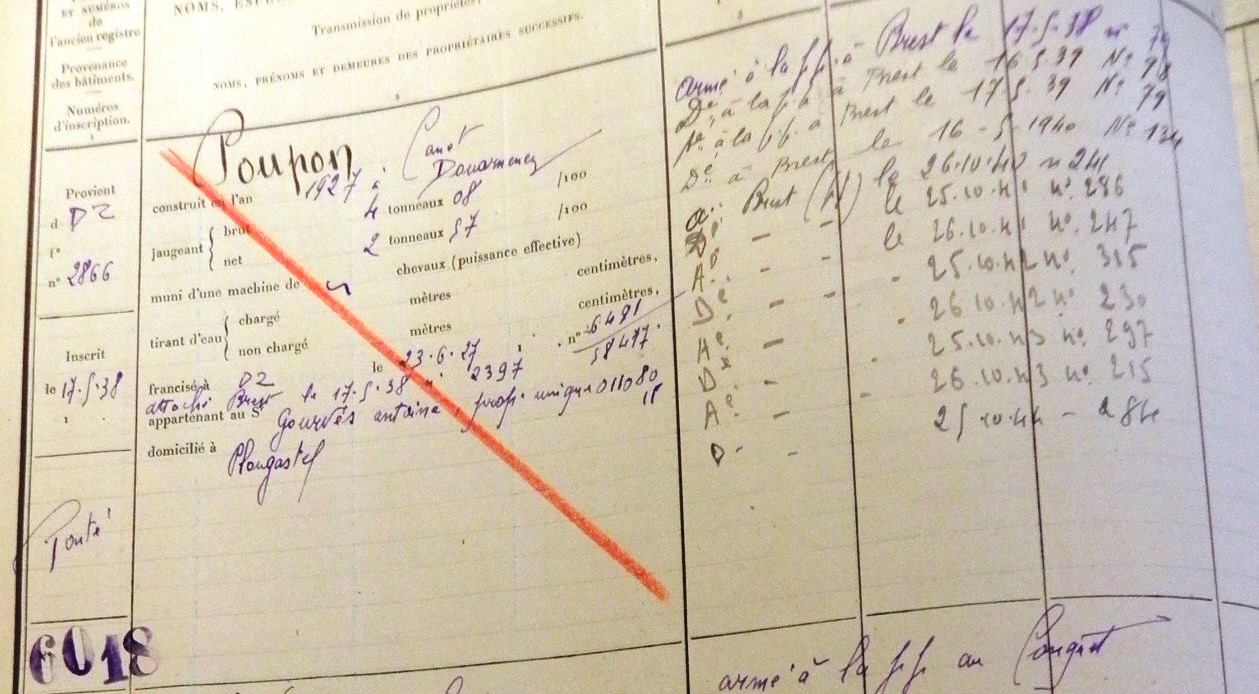 ET NUMÉROS
de
l'ancien registre
Provenance
des bâtiments.
Numéros
d'inscription.
1
Provient
d DZ
f°
n° 2866
Inscrit
le 17.5.38
Ponté
6018
Transmission de propriétés.
NOMS, PRÉNOMS ET DEMEURES DES PROPRIÉTAIRES SUCCESSIFS.
2
Poupon
Canot
construit en l'an 1927 à Douarnenez
jaugeant { brut 4 tonneaux 08 /100
net 2 tonneaux 57 /100
muni d'une machine de chevaux (puissance effective)
tirant d'eau { chargé mètres centimètres,
non chargé mètres centimètres,
francisé à DZ le 23.6.27 n° 6481
58477
attaché Brest le 17.5.38 n° 2397
appartenant au Sr Gourvès antoine, prop. unique 011080
18
domicilié à Plougastel
3
armé à la pp. à Brest le 17.5.38 n° 79
Dé. à la pp à Brest le 16 5.39 N° 78
Aé. à la pp. à Brest le 17 5.39 N° 79
Dé. à Brest le 16-5-1940 N° 134
a. Brest (N) le 26.10.40 n 241
Dé - - le 25.10.41 n° 286
Aé - - le 26.10.41 n° 247
Dé. - - . 25.10.42 n° 315
Aé. - - . 26.10.42 n° 230
Dé - . 25.10.43 n° 297
Aé. - - 26.10.43 n° 215
D. - 25 10.44 - 284
armé à la pp au Conquet